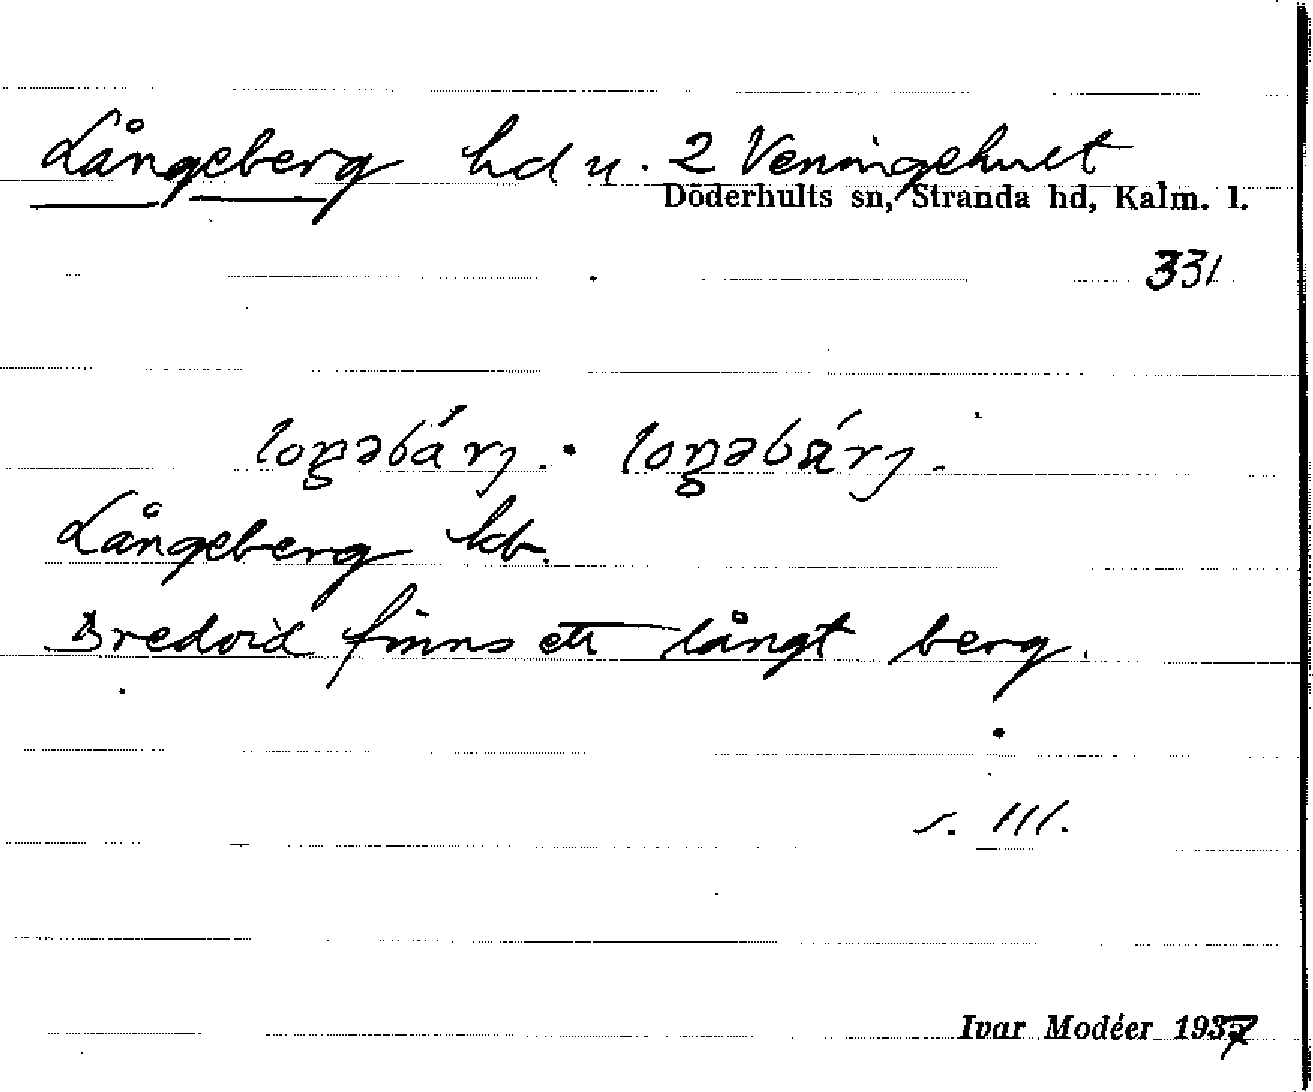 Långeberg hd u. 2 Veningehult
Döderhults sn, Stranda hd, Kalm. l.
331
loŋəbárj. loŋəbárj.
Långeberg kb.
Bredvid finns ett långt berg.
s. 111.
Ivar Modéer 1937